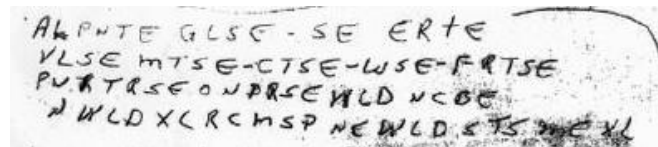 ALPNTE GLSE-SE ERTE
VLSE MTSE-CTSE-WSE-FRTSE
PNRTRSEONPRSEWLD NCBE
NWLDXLRCMSP NEWLDSTS ME XL